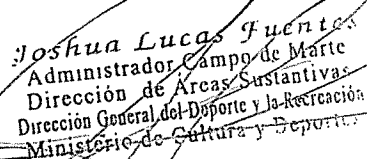 Joshua Lucas Fuentes
Administrador Campo de Marte
Dirección de Áreas Sustantivas
Dirección General del Deporte y la Recreación
Ministerio de Cultura y Deportes